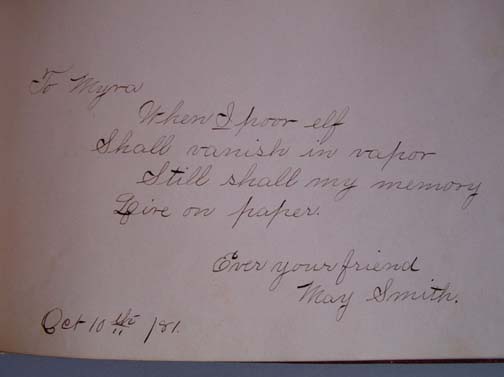 To Myra
When I poor elf
Shall vanish in vapor
Still shall my memory
Live on paper.
Ever your friend
May Smith.
Oct 10th /81.